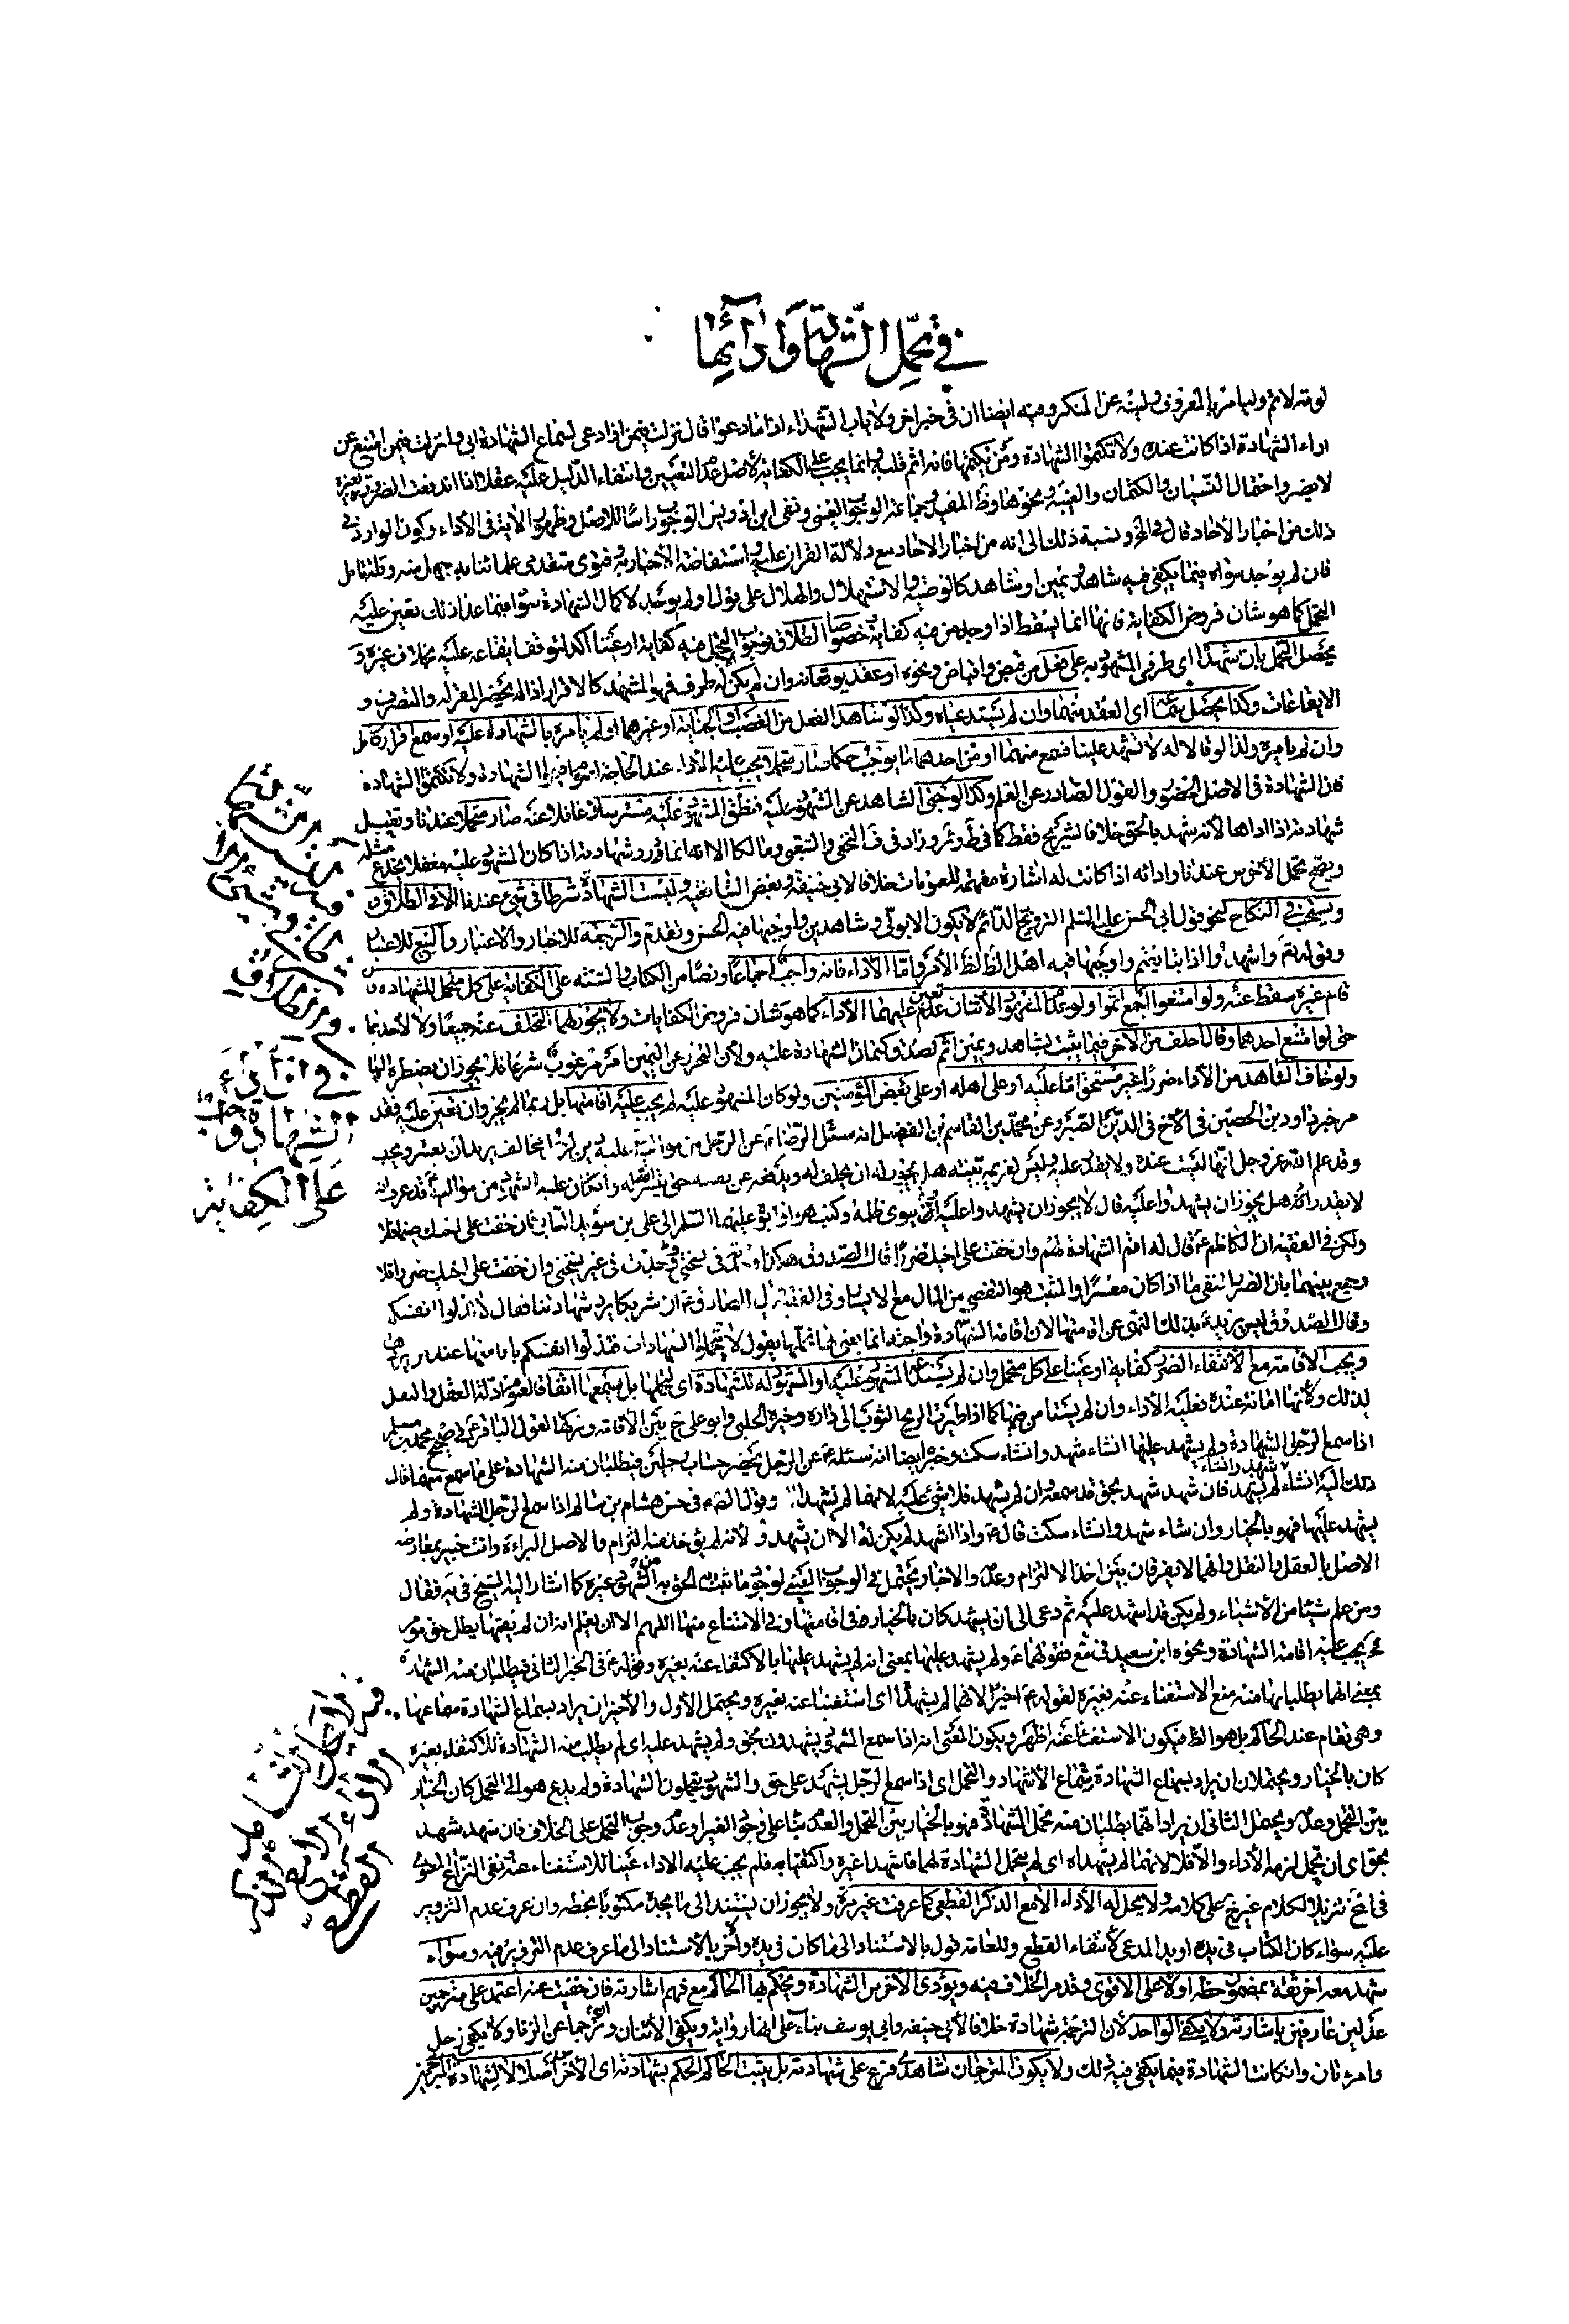 في تحمل الشهادة وادائها
لومة لائم وليامر بالمعروف ولينه عن المنكر وفيه ايضا ان في خبر اخر ولا ياب الشهداء اذا ما دعوا قال نزلت فيمن اذا دعي لسماع الشهادة ابى ونزلت فيمن امتنع عن
اداء الشهادة اذا كانت عنده ولا تكتموا الشهادة ومن يكتمها فانه اثم قلبه وانما يجب على الكفاية لاصل عدم التعيين وانتفاء الدليل عليه عقلا اذا اندفعت الضرورة بغيره
لا يضر واحتمال النسيان والكتمان والغيبة ونحوها وظ المفيد وجماعة الوجوب العيني ونفى ابن ادريس الوجوب راسا للاصل وظهور الاية في الاداء وكون الوارد في
ذلك من اخبار الاحاد قال في لف ونسبة ذلك الى انه من اخبار الاحاد مع دلالة القران عليه واستفاضة الاخبار به وفتوى متقدمي علمائنا به جهل منه وقلة تامل
فان لم يوجد سواه فيما يكفي فيه شاهد ويمين او شاهد كالوصية والاستهلال والهلال على قول او لم يوجد لاكمال الشهادة سواه فيما عدا ذلك تعين عليه
التحمل كما هو شان فروض الكفاية فانها انما يسقط اذا وجد من فيه كفاية خصوصا الطلاق فوجوب التحمل فيه كفاية او عينا اكد لتوقف ايقاعه عليه بخلاف غيره و
يحصل التحمل بان شهدا اي طرفي المشهود به على فعل من قبض واقباض ونحوه او عقد يوقعانه وان لم يكن له طرف فهو المشهد كالاقرار اذا لم يحضر المقر له والتصرف و
الايقاعات وكذا يحصل بسماعه اي العقد منهما وان لم يستدعياه وكذا لو شاهد الفعل من الغصب او الجناية او غيرهما ولم يامره بالشهادة عليه او سمع اقرار كامل
وان لم يامره ولذا لو قالا له لا تشهد علينا فسمع منهما او من احدهما ما يوجب حكما صار متحملا يجب عليه الاداء عند الحاجة لعموم اقيموا الشهادة ولا تكتموا الشهادة
فان الشهادة في الاصل الحضور والقول الصادر عن العلم وكذا لو خبئ الشاهد عن المشهود عليه فنطق المشهود عليه مسترسلا غافلا عنه صار متحملا عندنا وتقبل
شهادته اذا اداها لانه شهد بالحق خلافا لشريح فقط كما في ط وئر وزاد في ف النخعي والشعبي ومالكا الا انه انما رد شهادته اذا كان المشهود عليه مغفلا يخدع مثله
ويصح تحمل الاخرس عندنا وادائه اذا كانت له اشارة مفهمة للعمومات خلافا لابي حنيفة وبعض الشافعية وليست الشهادة شرطا في شيء عندنا الا في الطلاق و
ويستحب في النكاح لنحو قول ابي الحسن عليه السلم التزويج الدائم لا يكون الا بولي وشاهدين واوجبها فيه الحسن وتقدم والرجعة للاخبار والاعتبار والبيع للاعتبار
وقوله تعالى واشهدوا اذا تبايعتم واوجبها فيه اهل الظ لظ الامر واما الاداء فانه واجب اجماعا ونصا من الكتاب والسنة على الكفاية على كل متحمل للشهادة فان
قام غيره سقط عنه ولو امتنعوا اجمع اثموا ولو عدم المشهود الا اثنان تعين عليهما الاداء كما هو شان فروض الكفايات ولا يجوز لهما التخلف عنه جميعا ولا لاحدهما
حتى لو امتنع احدهما وقال احلف مع الاخر فيما يثبت بشاهد ويمين اثم لصدق كتمان الشهادة عليه ولان التحرز عن اليمين امر مرغوب شرعا فلا يجوز ان يضطره اليها
ولو خاف الشاهد من الاداء ضررا غير مستحق اما عليه او على اهله او على بعض المؤمنين ولو كان المشهود عليه لم يجب عليه اقامتها بل ربما لم يجز وان تعين عليه فقد
مر خبر داود بن الحصين في الاخ في الدين الصبر وعن محمد بن القاسم بن الفضيل انه سئل الرضا ع عن الرجل من مواليك عليه دين لرجل مخالف يريد ان يعسره ويحبسه
وقد علم الله عز وجل انها ليست عنده ولا يقدر عليه وليس لغريمه بينة هل يجوز له ان يحلف له ويدفعه عن نفسه حتى ييسر الله له وان كان عليه الشهود من مواليك قد عرفوا انه
لا يقدر هل يجوز ان يشهدوا عليه قال لا يجوز ان يشهدوا عليه ولا ينوي ظلمه وكتب ابو الحسن عليهما السلم الى علي بن سويد السائي فان خفت على اخيك ضيما فلا
ولكن في الفقيه ان الكاظم ع قال له اقم الشهادة لهم وان خفت على اخيك ضررا قال الصدوق هكذا وجدته في نسختي ووجدت في غير نسختي وان خفت على اخيك ضررا فلا
وجمع بينهما بان الضرر المنفي ما اذا كان معسرا والمثبت هو النقص من المال مع الايسار وفي الفقيه قيل للصادق ع ان شريكا يرد شهادتنا فقال لا تذلوا انفسكم
وقال الصدوق ليس يريد ع بذلك النهي عن اقامتها لان اقامة الشهادة واجبة انما يعني بها تحملها يقول لا تتحملوا الشهادات فتذلوا انفسكم باقامتها عند من يردها
ويجب الاقامة مع الانتفاء الضرر كفاية او عينا على كل متحمل وان لم يستدعه المشهود عليه او المشهود له للشهادة اي لتحملها بل سمعها اتفاقا لعموم ادلة العقل والنقل
لذلك ولانها امانة عنده فعليه الاداء وان لم يستامن فيها كما اذا طيرت الريح الثوب الى داره وخيره الحلبي وابو علي ح بين الاقامة وتركها لقول الباقر ع في صحيح محمد بن مسلم
اذا سمع الرجل الشهادة ولم يشهد عليها ان شاء شهد وان شاء سكت وخبره ايضا انه سئله ع عن الرجل يحضر حساب رجلين فيطلبان منه الشهادة على ما سمع منهما قال
ذلك اليه ان شاء شهد وان شاء لم يشهد فان شهد شهد بحق قد سمعه وان لم يشهد فلا شيء عليه لانهما لم يشهداه وقول الصادق ع في حسن هشام بن سالم اذا سمع الرجل الشهادة ولم
يشهد عليها فهو بالخيار وان شاء شهد وان شاء سكت قال ع واذا اشهد لم يكن له الا ان يشهد ولانه لم يؤخذ منه التزام والاصل البراءة وانت خبير بمعارضة
الاصل بالعقل والنقل وانهما لا يفرقان بين اخذ الالتزام وعدمه والاخبار يحتمل نفي الوجوب العيني لوجود ما ثبت به الحق من الشهود غيره كما اشار اليه الشيخ في يه فقال
ومن علم شيئا من الاشياء ولم يكن قد اشهد عليه ثم دعي الى ان يشهد كان بالخيار في اقامتها وفي الامتناع منها اللهم الا ان يعلم انه ان لم يقمها بطل حق مؤمن
فح يجب عليه اقامة الشهادة ونحوه ابن سعيد في مع فقولهما ع ولم يشهد عليها بمعنى انه لم يشهد عليها بالاكتفاء عنه بغيره وقوله ع في الخبر الثاني فيطلبان منه الشهادة
بمعنى انهما يطلبانها منه مع الاستغناء عنه بغيره لقوله ع اخيرا لانهما لم يشهداه اي استغنيا عنه بغيره ويحتمل الاول والاخيران يراد بسماع الشهادة سماعها
وهي تقام عند الحاكم بل هو الظ فيكون الاستغناء عنه اظهر ويكون المعنى انه اذا سمع الشهود يشهدون بحق ولم يشهد عليه اي لم يطلب منه الشهادة للاكتفاء بغيره
كان بالخيار ويحتملان ان يراد بسماع الشهادة سماع الاشهاد والتحمل اي اذا سمع الرجل يشهد على حق والشهود يتحملون الشهادة ولم يدع هو الى التحمل كان الخيار
بين التحمل وعدمه ويحتمل الثاني ان يراد انهما يطلبان منه تحمل الشهادة فهو بالخيار بين التحمل والعدم بناء على وجود الغير او عدم وجوب التحمل على الخلاف فان شهد شهد
بحق اي ان تحمل لزمه الاداء والا فلا لانهما لم يشهداه اي لم يتحمل الشهادة لهما فاشهدا غيره واكتفيا به فلم يجب عليه الاداء عينا للاستغناء عنه نفي النزاع المعنوي
في لف تنزيلا لكلام الشيخ على كلامه ولا يحل له الاداء الا مع الذكر القطعي كما عرفت غير مرة ولا يجوز ان يستند الى ما يجده مكتوبا بخطه وان عرف عدم التزوير
عليه سواء كان الكتاب في يده او يد المدعي لانتفاء القطع وللعامة قول بالاستناد الى ما كان في يده واخر بالاستناد الى ما عرف عدم التزوير فيه وسواء
شهد معه اخر ثقة بمضمون خطه او لا على الاقوى وقد مر الخلاف فيه ويؤدي الاخرس الشهادة ويحكم بها الحاكم مع فهم اشارته فان خفيت عنه اعتمد على مترجمين
عدلين عارفين باشارته ولا يكفي الواحد لان الترجمة شهادة خلافا لابي حنيفة وابي يوسف بناء على انها رواية ويكفي الاثنان وان ترجما عن الزنا ولا يكفي رجل
وامرءتان وان كانت الشهادة فيما يكفي فيه ذلك ولا يكون المترجمان شاهدي فرع على شهادته بل يثبت الحاكم الحكم بشهادته اي الاخرس اصلا لا بشهادة المترجمين
في ان اداء
الشهادة واجب
على الكفاية